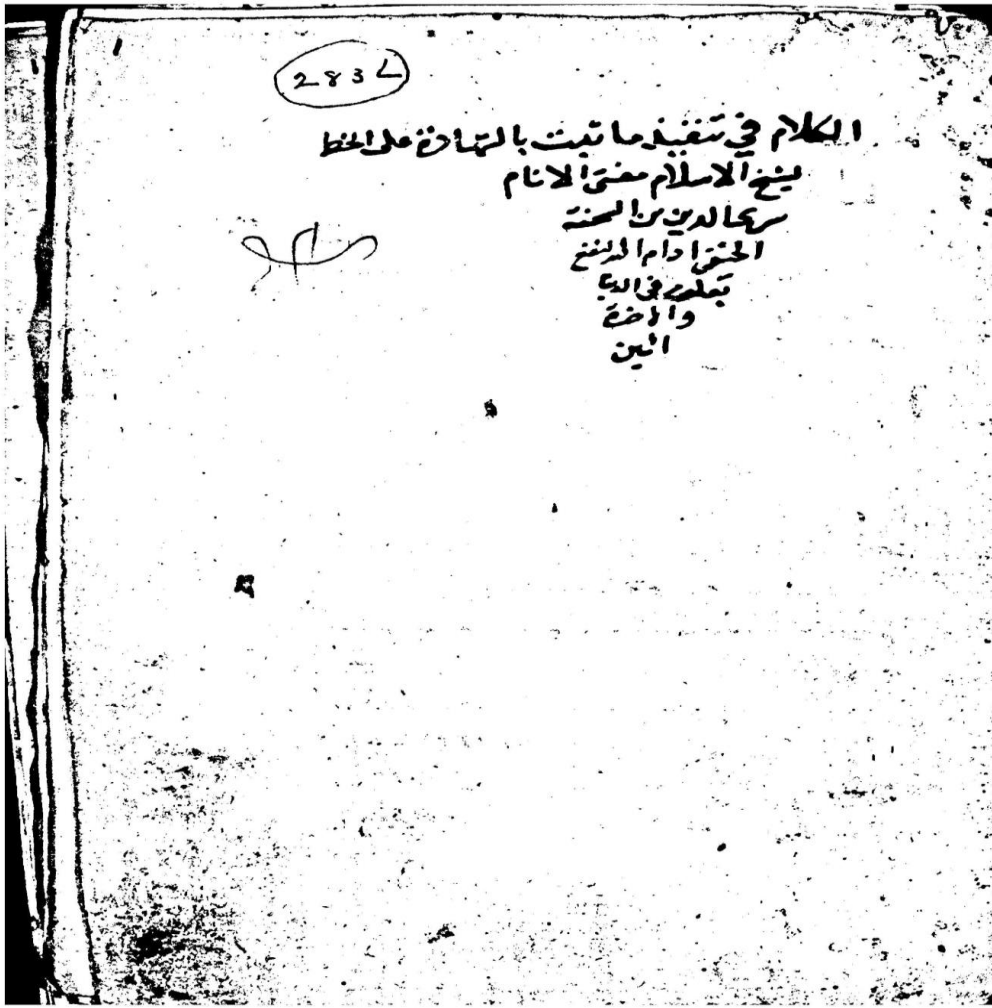 2837
الكلام في تنفيذ ما ثبت بالشهادة على الخط
لشيخ الاسلام مفتى الانام
سرى الدين بن الشحنة
الحنفى ادام الله النفع
بعلومه فى الدنيا
والاخرة
امين